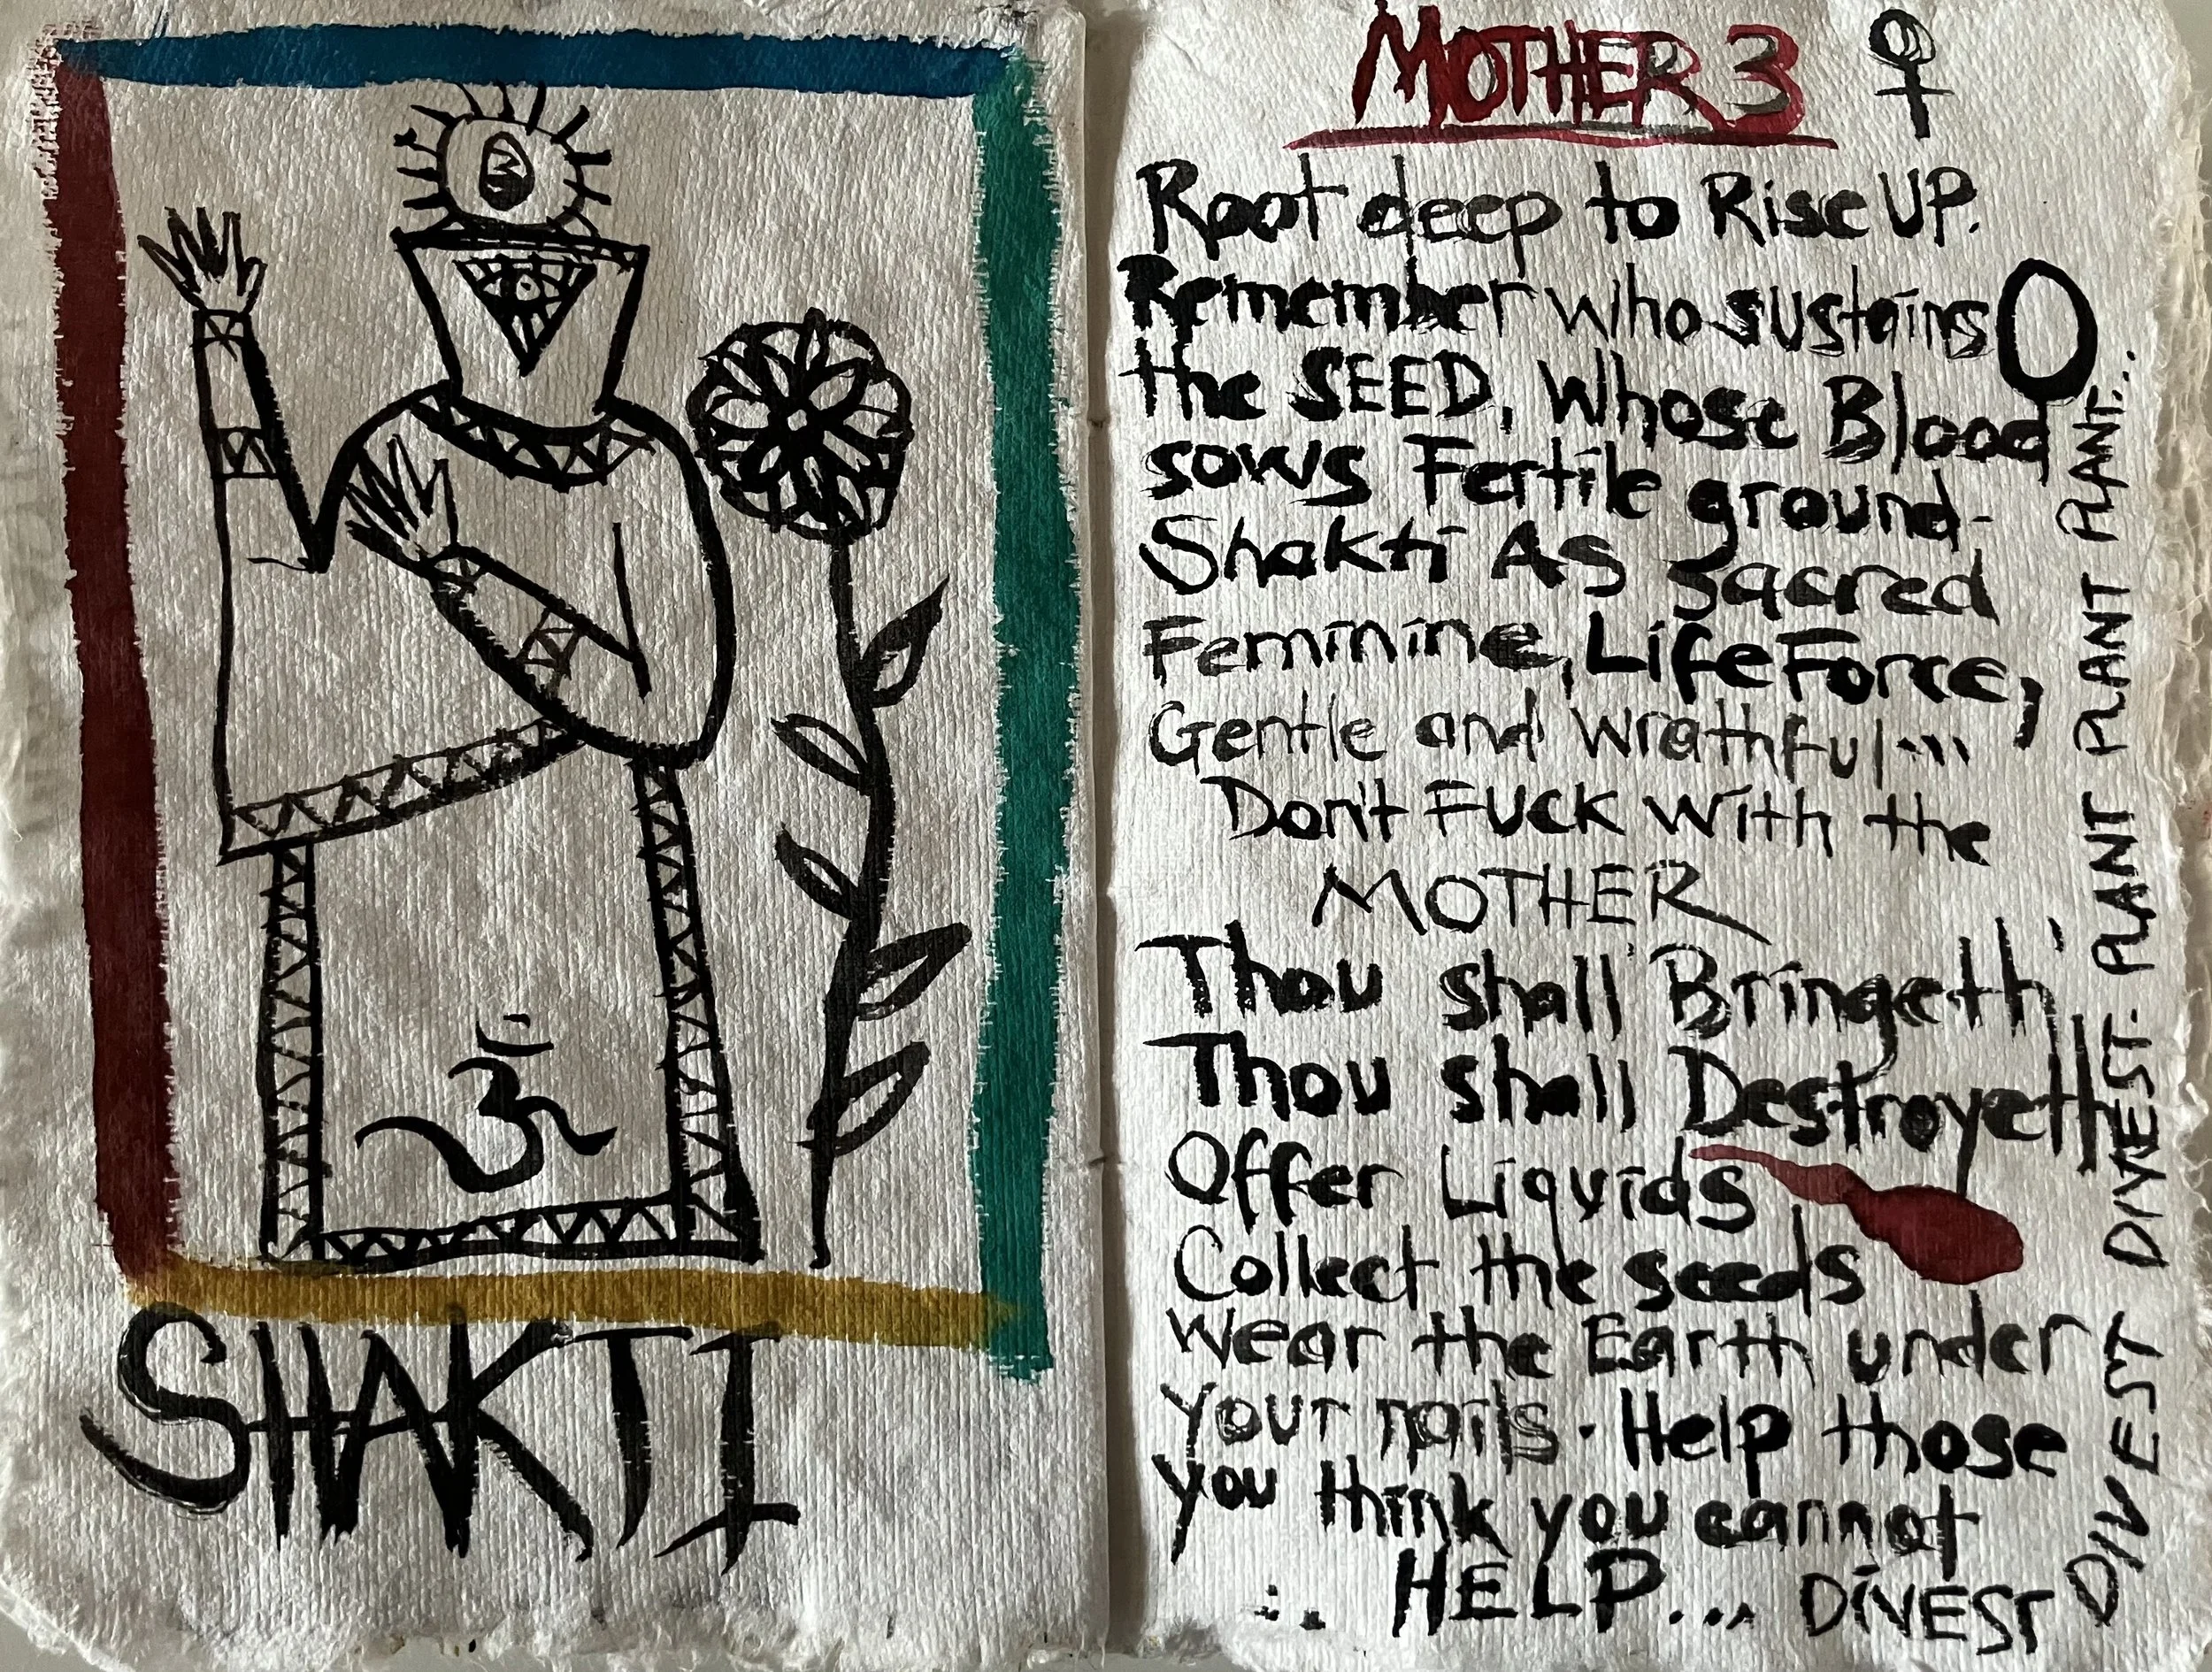 3
ॐ
SHAKTI
MOTHER 3 ♀
Root deep to Rise UP.
Remember who sustains
the SEED, Whose Blood
sows Fertile ground-
Shakti As Sacred
Feminine, Life Force,
Gentle and Wrathful...
Don't FUCK With the
MOTHER
Thou shall Bringeth
Thou shall Destroyeth
Offer Liquids
Collect the seeds
Wear the Earth under
your nails. Help those
you think you cannot
∴ HELP... DiVEST
DIVEST DIVEST- PLANT PLANT PLANT PLANT PLANT...